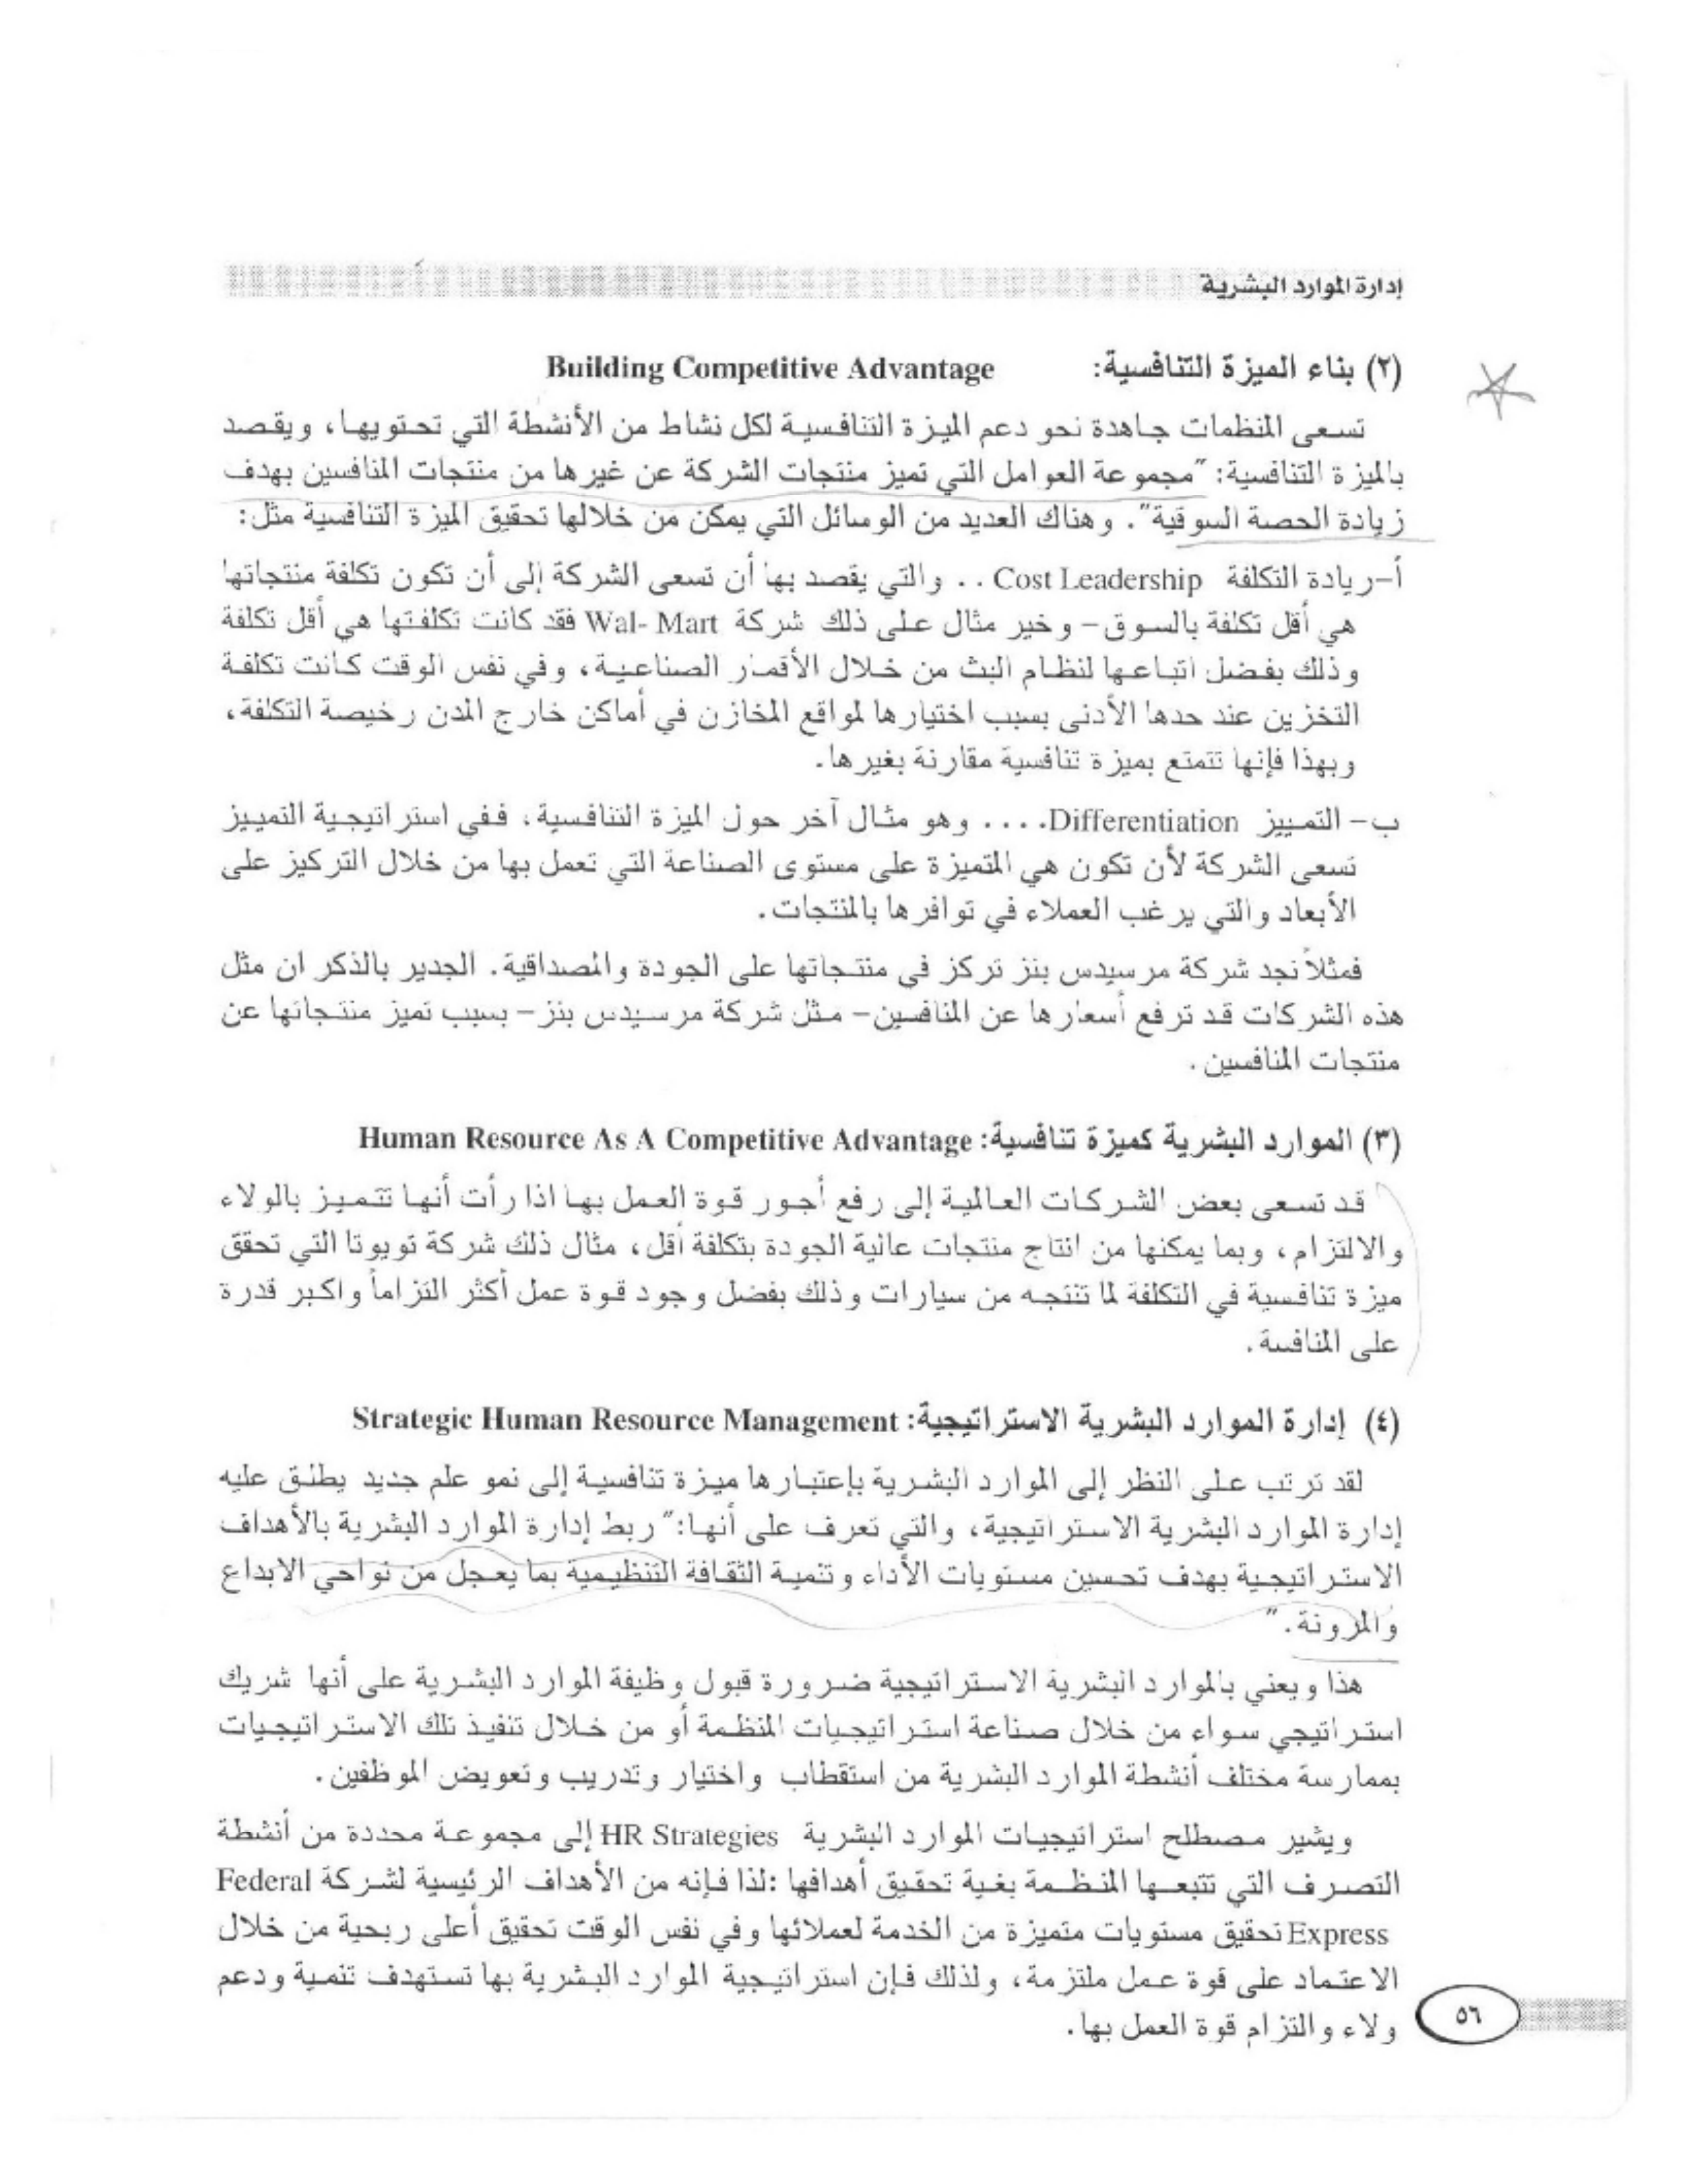 إدارة الموارد البشرية
(٢) بناء الميزة التنافسية: Building Competitive Advantage
تسعى المنظمات جاهدة نحو دعم الميزة التنافسية لكل نشاط من الأنشطة التي تحتويها، ويقصد
بالميزة التنافسية: "مجموعة العوامل التي تميز منتجات الشركة عن غيرها من منتجات المنافسين بهدف
زيادة الحصة السوقية". وهناك العديد من الوسائل التي يمكن من خلالها تحقيق الميزة التنافسية مثل:
أ-ريادة التكلفة Cost Leadership .. والتي يقصد بها أن تسعى الشركة إلى أن تكون تكلفة منتجاتها
هي أقل تكلفة بالسوق- وخير مثال على ذلك شركة Wal- Mart فقد كانت تكلفتها هي أقل تكلفة
وذلك بفضل اتباعها لنظام البث من خلال الأقمار الصناعية، وفي نفس الوقت كانت تكلفة
التخزين عند حدها الأدنى بسبب اختيارها لمواقع المخازن في أماكن خارج المدن رخيصة التكلفة،
وبهذا فإنها تتمتع بميزة تنافسية مقارنة بغيرها.
ب- التمييز Differentiation.... وهو مثال آخر حول الميزة التنافسية، ففي استراتيجية التمييز
تسعى الشركة لأن تكون هي المتميزة على مستوى الصناعة التي تعمل بها من خلال التركيز على
الأبعاد والتي يرغب العملاء في توافرها بالمنتجات.
فمثلاً نجد شركة مرسيدس بنز تركز في منتجاتها على الجودة والمصداقية. الجدير بالذكر ان مثل
هذه الشركات قد ترفع أسعارها عن المنافسين- مثل شركة مرسيدس بنز- بسبب تميز منتجاتها عن
منتجات المنافسين.
(٣) الموارد البشرية كميزة تنافسية: Human Resource As A Competitive Advantage
قد تسعى بعض الشركات العالمية إلى رفع أجور قوة العمل بها اذا رأت أنها تتميز بالولاء
والالتزام، وبما يمكنها من انتاج منتجات عالية الجودة بتكلفة أقل، مثال ذلك شركة تويوتا التي تحقق
ميزة تنافسية في التكلفة لما تنتجه من سيارات وذلك بفضل وجود قوة عمل أكثر التزاماً واكبر قدرة
على المنافسة.
(٤) إدارة الموارد البشرية الاستراتيجية: Strategic Human Resource Management
لقد ترتب على النظر إلى الموارد البشرية بإعتبارها ميزة تنافسية إلى نمو علم جديد يطلق عليه
إدارة الموارد البشرية الاستراتيجية، والتي تعرف على أنها:" ربط إدارة الموارد البشرية بالأهداف
الاستراتيجية بهدف تحسين مستويات الأداء وتنمية الثقافة التنظيمية بما يعجل من نواحي الابداع
والمرونة."
هذا ويعني بالموارد البشرية الاستراتيجية ضرورة قبول وظيفة الموارد البشرية على أنها شريك
استراتيجي سواء من خلال صناعة استراتيجيات المنظمة أو من خلال تنفيذ تلك الاستراتيجيات
بممارسة مختلف أنشطة الموارد البشرية من استقطاب واختيار وتدريب وتعويض الموظفين.
ويشير مصطلح استراتيجيات الموارد البشرية HR Strategies إلى مجموعة محددة من أنشطة
التصرف التي تتبعها المنظمة بغية تحقيق أهدافها :لذا فإنه من الأهداف الرئيسية لشركة Federal
Express تحقيق مستويات متميزة من الخدمة لعملائها وفي نفس الوقت تحقيق أعلى ربحية من خلال
الاعتماد على قوة عمل ملتزمة، ولذلك فإن استراتيجية الموارد البشرية بها تستهدف تنمية ودعم
ولاء والتزام قوة العمل بها.
٥٦